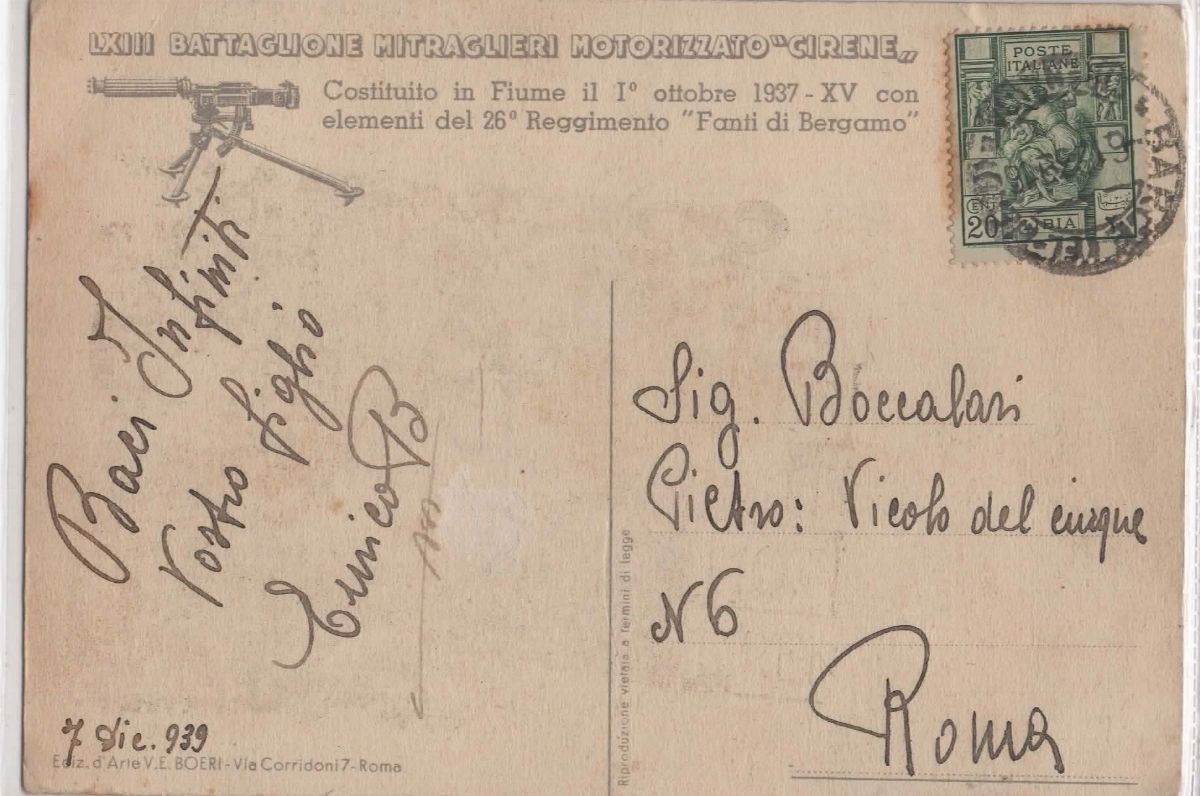 LXIII BATTAGLIONE MITRAGLIERI MOTORIZZATO "CIRENE„
Costituito in Fiume il I° ottobre 1937 - XV con
elementi del 26° Reggimento "Fanti di Bergamo"
POSTE
ITALIANE
CENT
20
LIBIA
Baci Infiniti
Vostro figlio
Enrico B
7 Dic. 939
Ediz. d'Arte V.E. BOERI - Via Corridoni 7 - Roma
Riproduzione vietata a termini di legge
Sig. Boccalari
Pietro: Vicolo del cinque
N 6
Roma